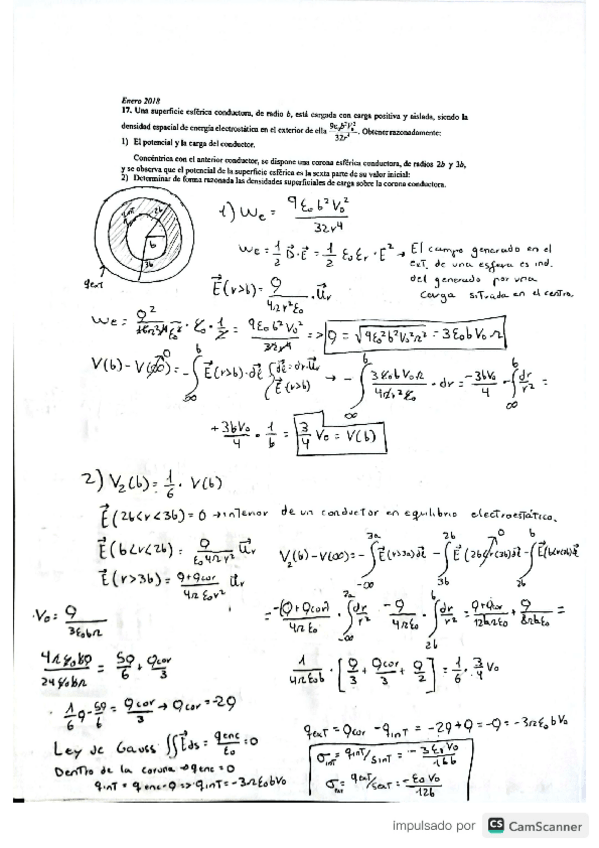 Enero 2018
17. Una superficie esférica conductora, de radio b, está cargada con carga positiva y aislada, siendo la
densidad espacial de energía electrostática en el exterior de ella 9ε₀b²V₀²/32r⁴. Obtener razonadamente:
1) El potencial y la carga del conductor.
Concéntrica con el anterior conductor, se dispone una corona esférica conductora, de radios 2b y 3b,
y se observa que el potencial de la superficie esférica es la sexta parte de su valor inicial:
2) Determinar de forma razonada las densidades superficiales de carga sobre la corona conductora.
qint 2b
b
3b
qext
1) We = 9ε₀b²V₀²/32r⁴
We = 1/2 D⃗·E⃗ = 1/2 ε₀εr·E² → El campo generado en el
ext. de una esfera es ind.
del generado por una
carga situada en el centro.
E⃗(r>b) = Q/4πr²ε₀ · u⃗r
We = Q²/16π²r⁴ε₀² · ε₀ · 1/2 = 9ε₀b²V₀²/32r⁴ => Q = √9ε₀²b²V₀²π² = 3ε₀bV₀π
V(b) - V(∞) = -∫ E⃗(r>b)·dℓ⃗ { dℓ⃗ = dr·u⃗r E⃗(r>b) → -∫ 3ε₀bV₀π/4πr²ε₀ · dr = -3bV₀/4 · ∫ dr/r² =
+3bV₀/4 · 1/b = 3/4 V₀ = V(b)
2) V₂(b) = 1/6 · V(b)
E⃗(2b<r<3b) = 0 → interior de un conductor en equilibrio electrostático.
E⃗(b<r<2b) = Q/ε₀4πr² u⃗r
V₂(b) - V(∞) = -∫ E⃗(r>3a)dℓ⃗ - ∫ E⃗(2b<r<3b)dℓ⃗ - ∫ E⃗(b<r<2b)dℓ⃗
E⃗(r>3b) = Q+Qcor/4πε₀r² u⃗r
·V₀ = Q/3ε₀bπ
= -(Q+Qcor)/4πε₀ · ∫ dr/r² - Q/4πε₀ · ∫ dr/r² = Q+Qcor/12bπε₀ + Q/8πbε₀ =
4πε₀bQ/24ε₀bπ = 5Q/6 + Qcor/3
1/4πε₀b · [Q/3 + Qcor/3 + Q/2] = 1/6 · 3/4 V₀
· 1/6 Q - 5Q/6 = Qcor/3 → Qcor = -2Q
Ley de Gauss ∯E⃗ds = qenc/ε₀ = 0
Dentro de la corona → qenc = 0
qint = qenc - Q => qint = -3πε₀bV₀
qext = Qcor - qint = -2Q + Q = -Q = -3πε₀bV₀
σint = qint/Sint = -3ε₀V₀/16b
σext = qext/Sext = -ε₀V₀/12b
impulsado por CS CamScanner